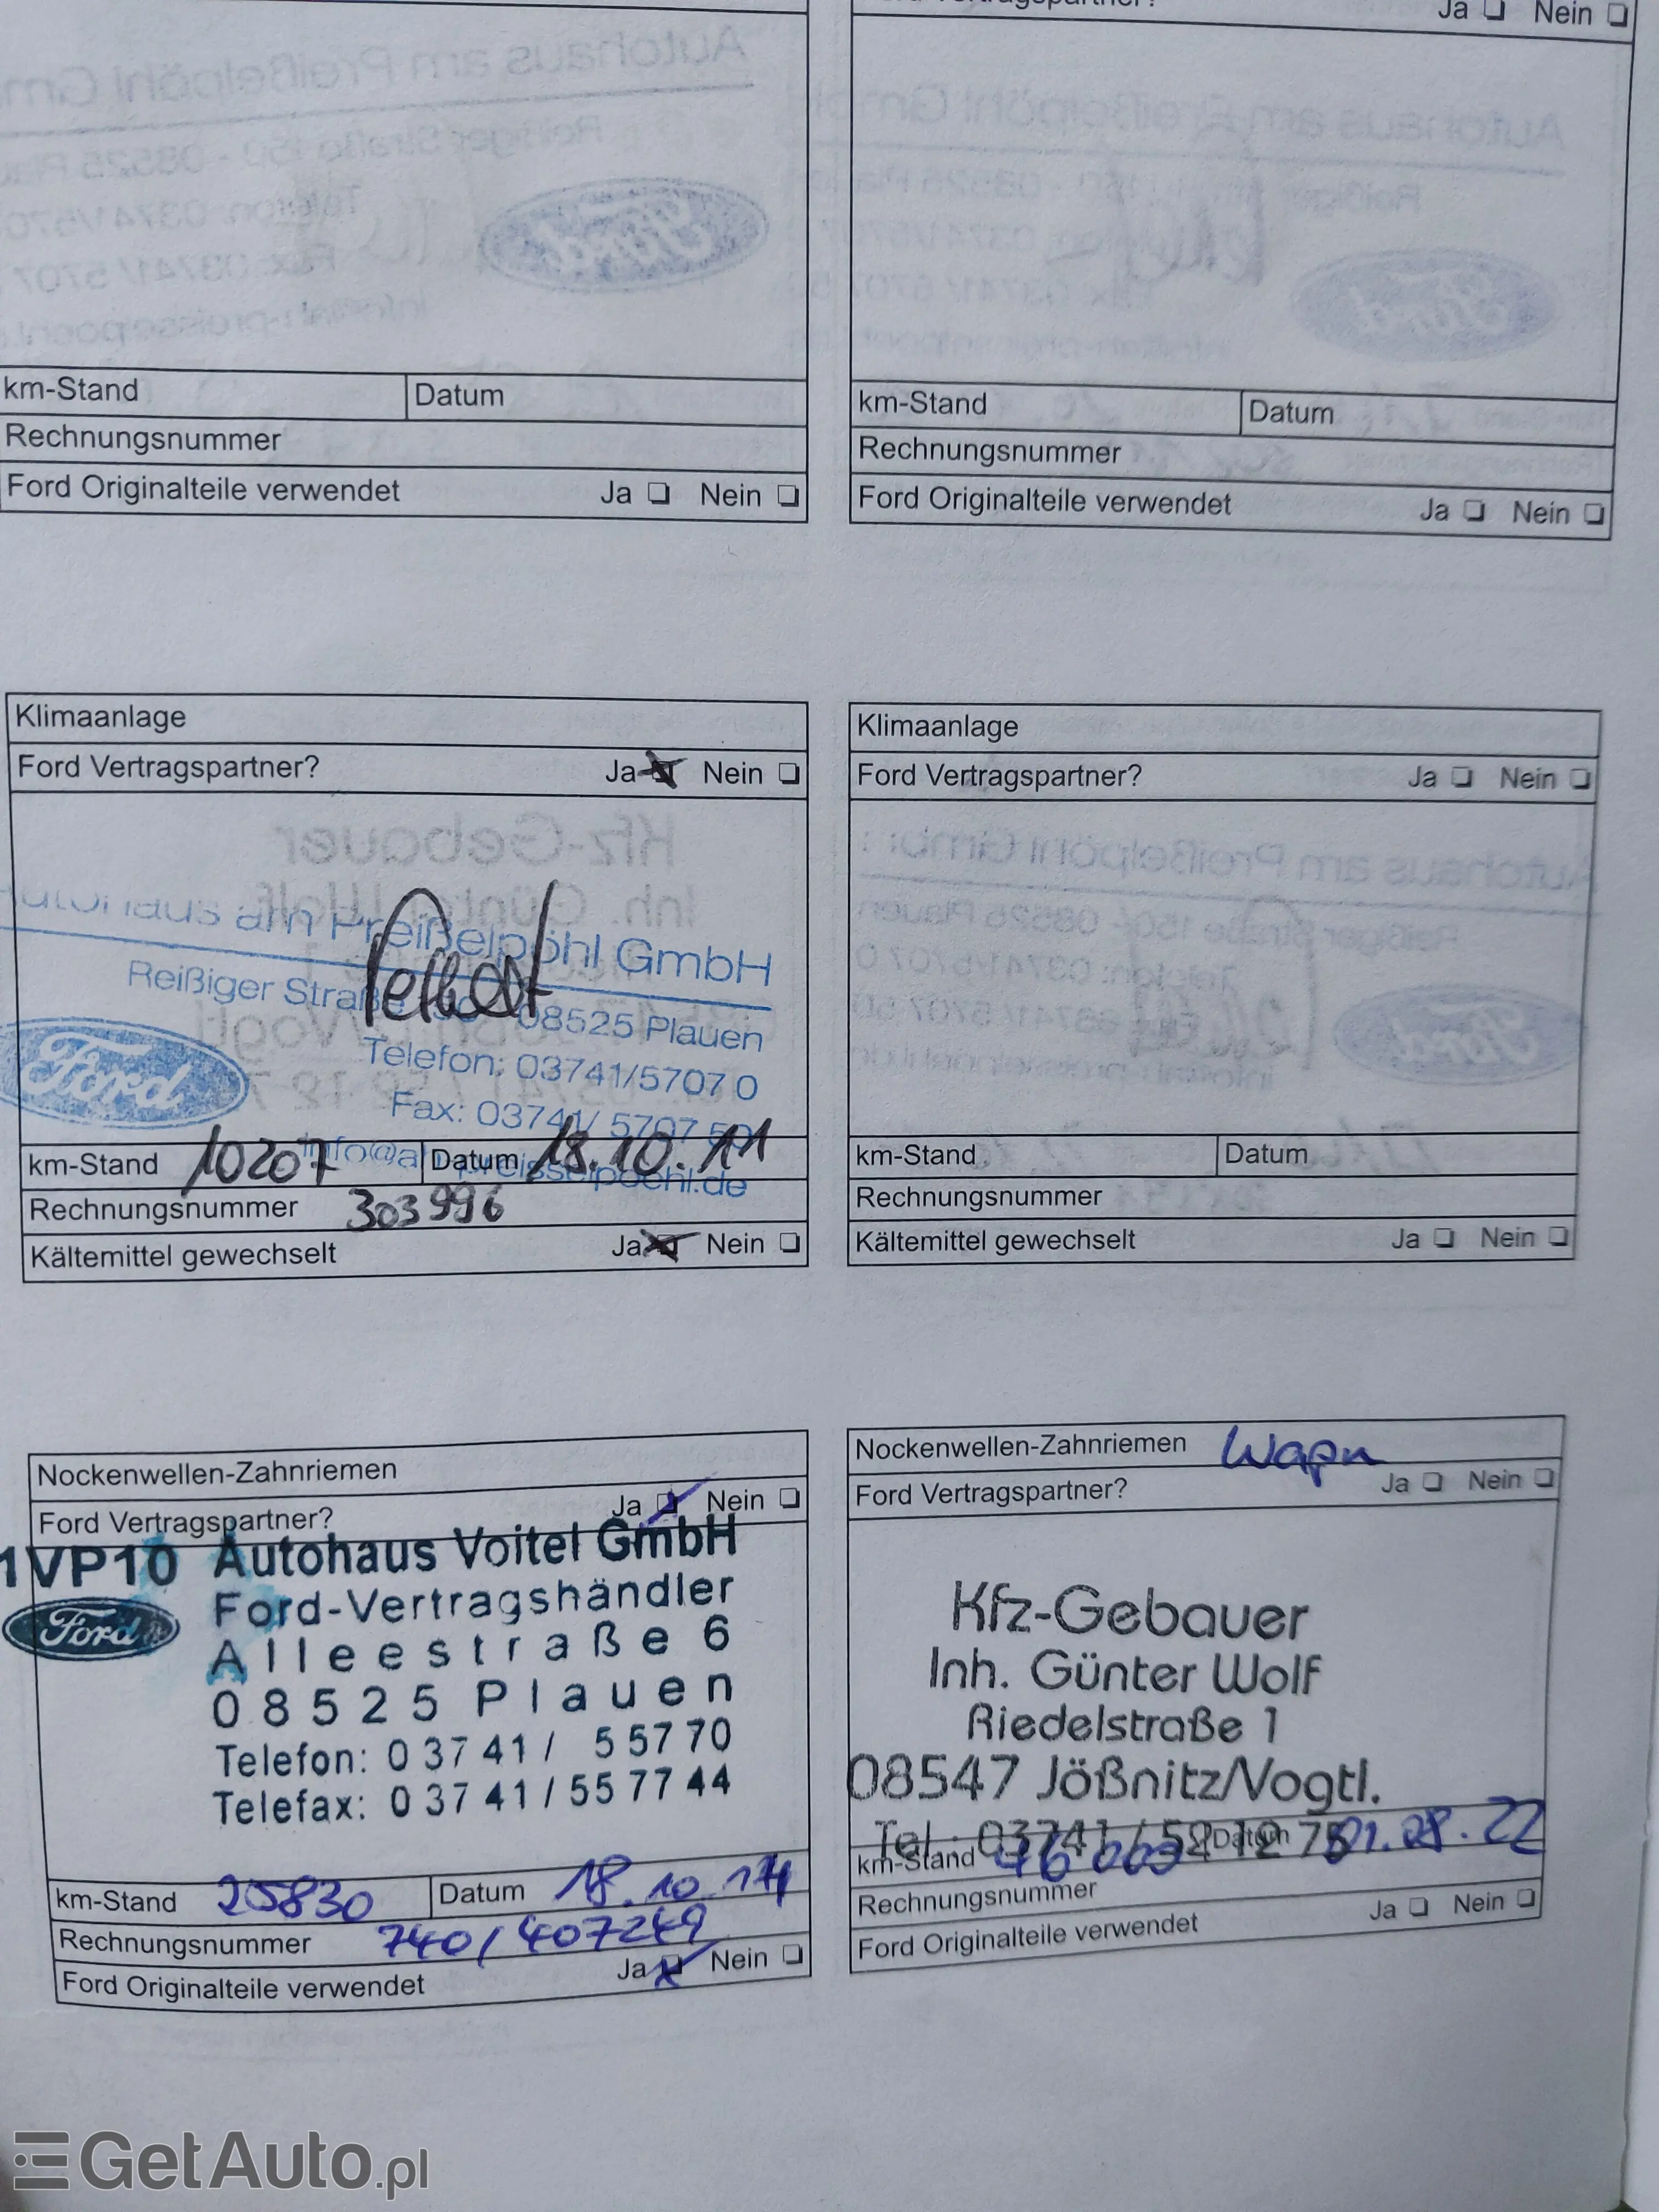 Ja ❏ Nein ❏
km-Stand Datum
Rechnungsnummer
Ford Originalteile verwendet Ja ❏ Nein ❏
km-Stand Datum
Rechnungsnummer
Ford Originalteile verwendet Ja ❏ Nein ❏
Klimaanlage
Ford Vertragspartner? Ja Nein ❏
Autohaus am Preißelpöhl GmbH
Reißiger Straße 08525 Plauen
Telefon: 03741/5707 0
Fax: 03741/ 5707 50
Ford
km-Stand 10207 Datum 18.10.11
info@ah-preisselpoehl.de
Rechnungsnummer 303996
Kältemittel gewechselt Ja Nein ❏
Klimaanlage
Ford Vertragspartner? Ja ❏ Nein ❏
km-Stand Datum
Rechnungsnummer
Kältemittel gewechselt Ja ❏ Nein ❏
Nockenwellen-Zahnriemen
Ford Vertragspartner? Ja Nein ❏
1VP10 Autohaus Voitel GmbH
Ford Ford-Vertragshändler
Alleestraße 6
08525 Plauen
Telefon: 03741/ 55770
Telefax: 03741/557744
km-Stand 25830 Datum 18.10.14
Rechnungsnummer 740/407249
Ford Originalteile verwendet Ja Nein ❏
Nockenwellen-Zahnriemen
Ford Vertragspartner? Ja ❏ Nein ❏
Kfz-Gebauer
Inh. Günter Wolf
Riedelstraße 1
08547 Jößnitz/Vogtl.
Tel.: 03741 / 52 12 75
km-Stand Datum
Rechnungsnummer
Ford Originalteile verwendet Ja ❏ Nein ❏
GetAuto.pl